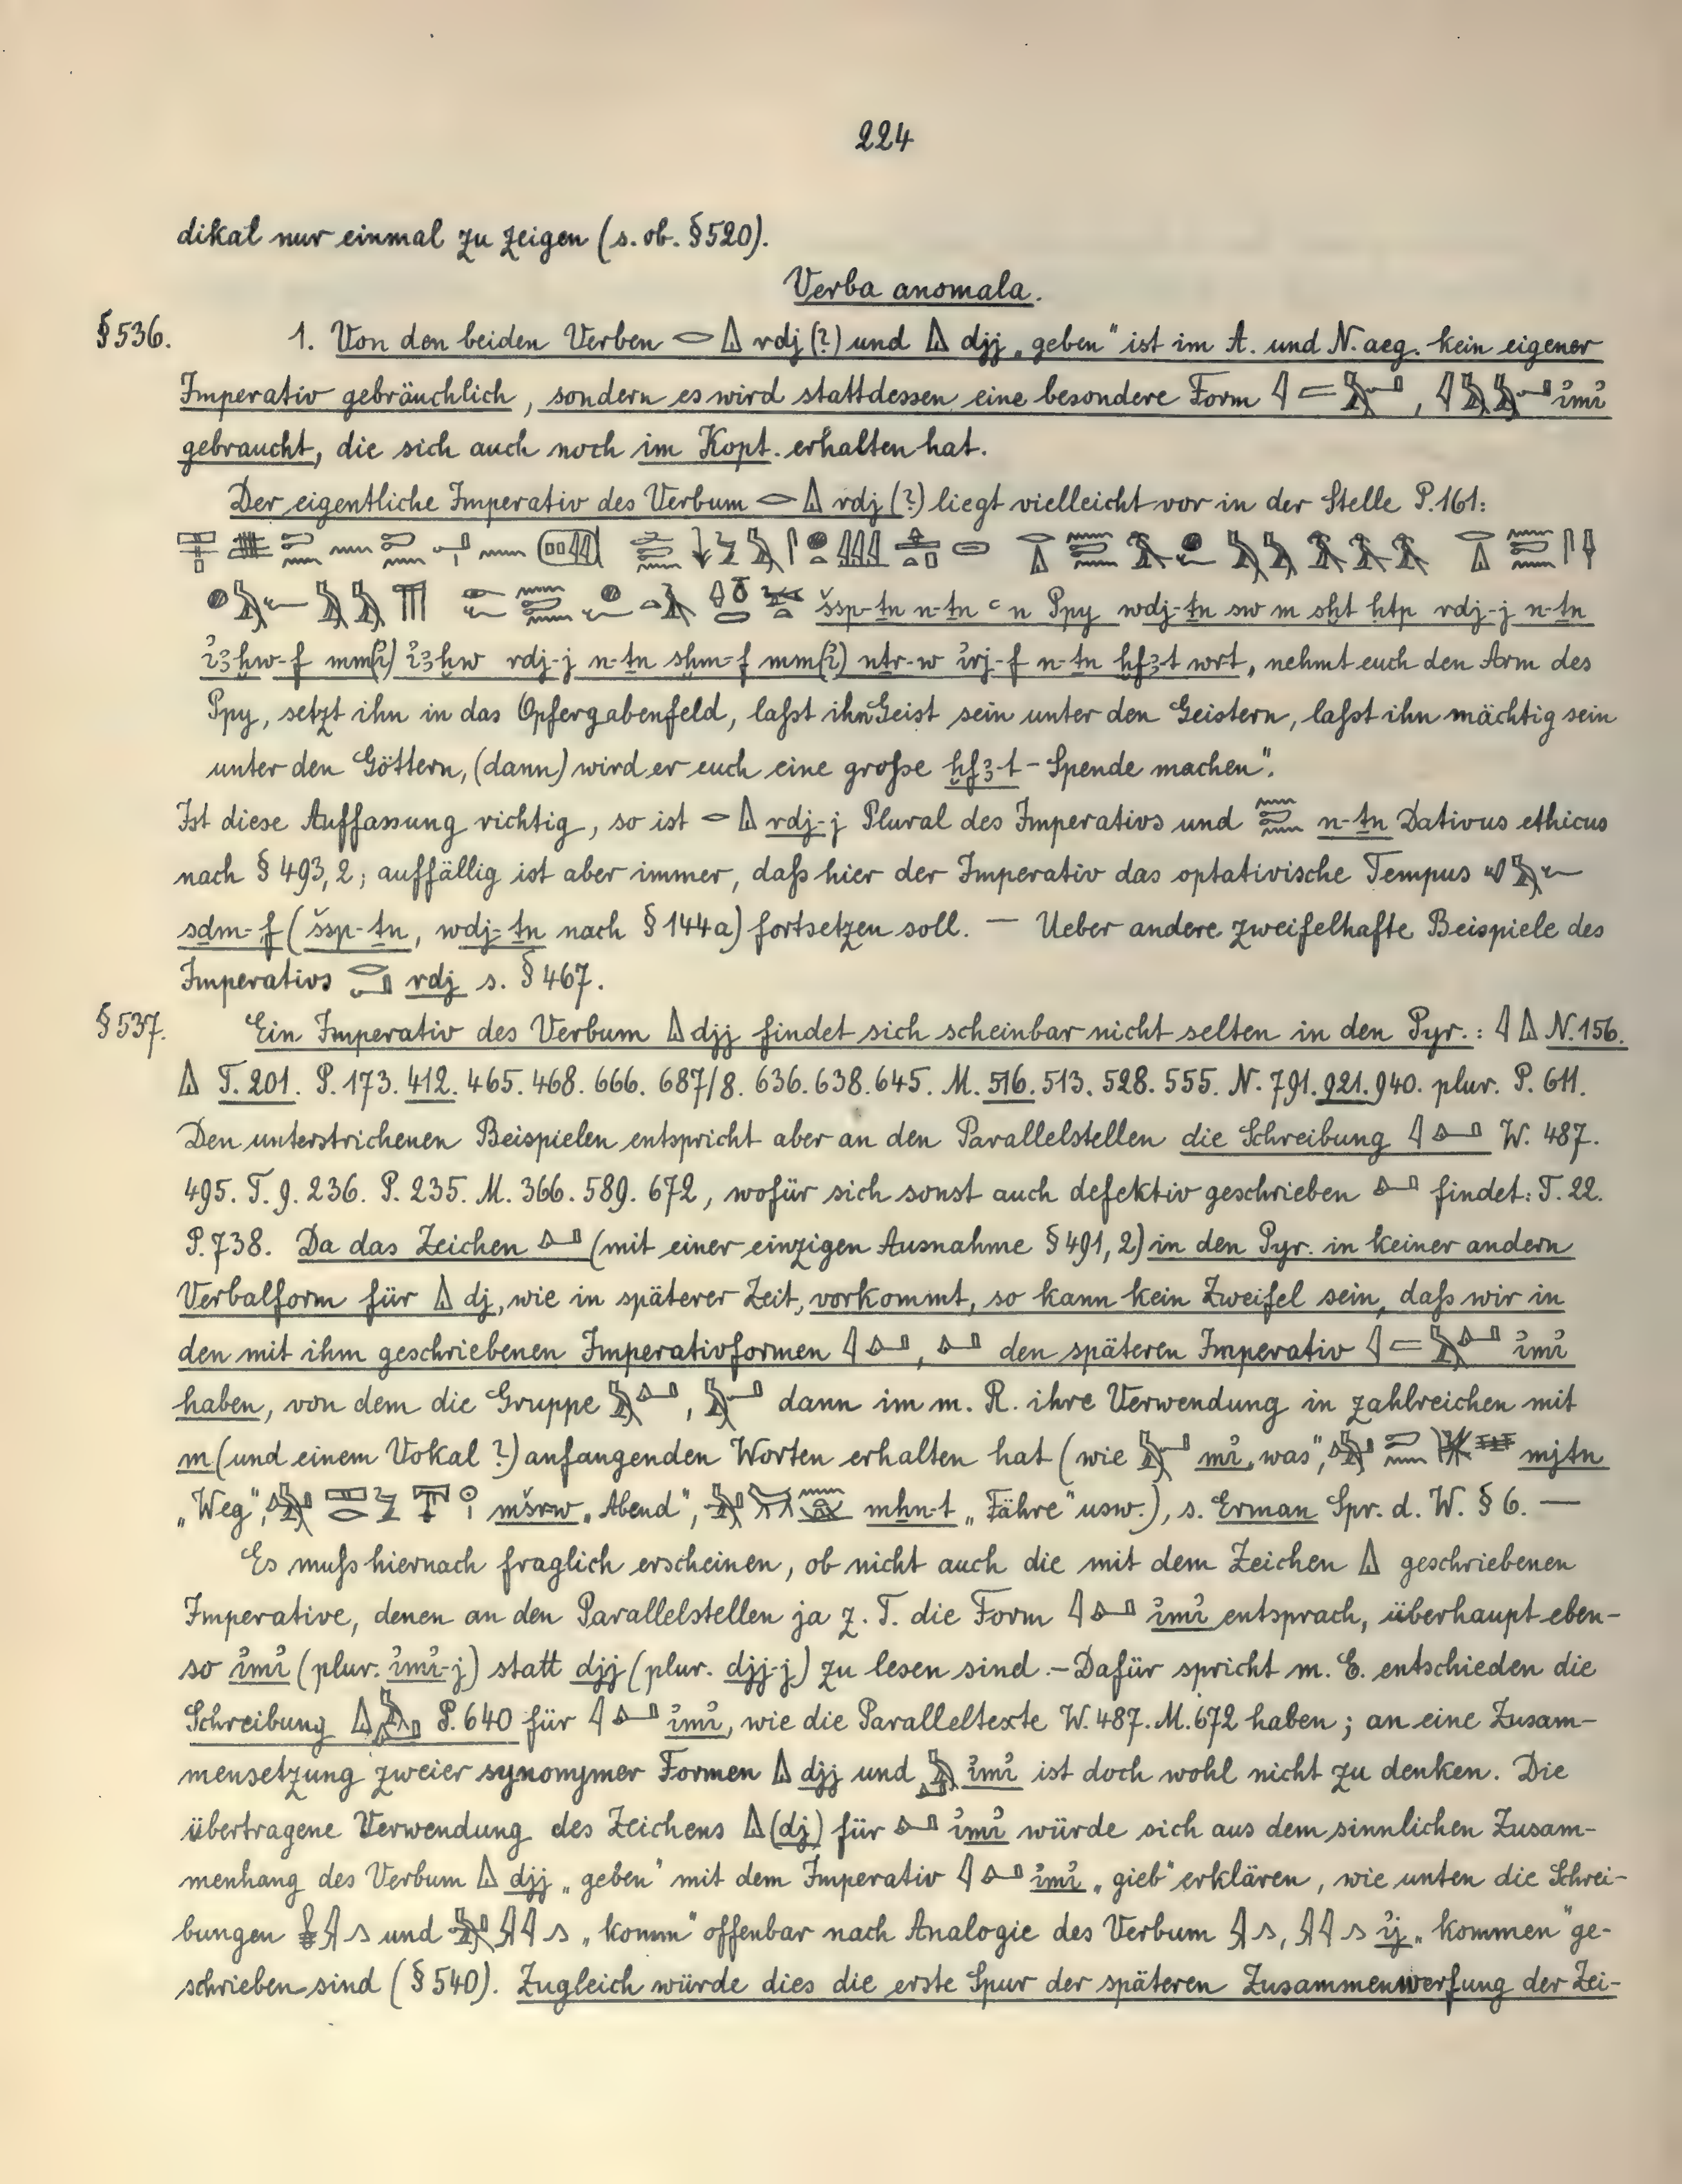 224
dikal nur einmal zu zeigen (s. ob. §520).
Verba anomala.
§536. 1. Von den beiden Verben 𓂋𓏙 rdj (?) und 𓏙 djj „geben" ist im A. und N. aeg. kein eigener
Imperativ gebräuchlich, sondern es wird stattdessen eine besondere Form 𓇋𓐝𓅓𓂝, 𓇋𓅓𓅓𓂝 i̓mi̓
gebraucht, die sich auch noch im Kopt. erhalten hat.
Der eigentliche Imperativ des Verbum 𓂋𓏙 rdj (?) liegt vielleicht vor in der Stelle P. 161:
šsp-ṯn n-ṯn ꜥ n Ppy wdj-ṯn sw m sḫt ḥtp rdj-j n-ṯn
i̓ꜣḫw-f mm(i̓) i̓ꜣḫw rdj-j n-ṯn sḫm-f mm(i̓) nṯr-w i̓rj-f n-ṯn ḫfꜣ-t wrt, nehmt euch den Arm des
Ppy, setzt ihn in das Opfergabenfeld, laßt ihn Geist sein unter den Geistern, laßt ihn mächtig sein
unter den Göttern, (dann) wird er euch eine große ḫfꜣ-t-Spende machen".
Ist diese Auffassung richtig, so ist 𓂋𓏙 rdj-j Plural des Imperativs und n-ṯn Dativus ethicus
nach § 493, 2; auffällig ist aber immer, daß hier der Imperativ das optativische Tempus 𓄔𓅓𓆑
sḏm-f (šsp-ṯn, wdj-ṯn nach § 144a) fortsetzen soll. — Ueber andere zweifelhafte Beispiele des
Imperativs rdj s. § 467.
§537. Ein Imperativ des Verbum 𓏙 djj findet sich scheinbar nicht selten in den Pyr.: 𓇋𓏙 N. 156.
𓏙 T. 201. P. 173. 412. 465. 468. 666. 687/8. 636. 638. 645. M. 516. 513. 528. 555. N. 791. 921. 940. plur. P. 611.
Den unterstrichenen Beispielen entspricht aber an den Parallelstellen die Schreibung 𓇋𓂞 W. 487.
495. T. 9. 236. P. 235. M. 366. 589. 672, wofür sich sonst auch defektiv geschrieben 𓂞 findet: T. 22.
P. 738. Da das Zeichen 𓂞 (mit einer einzigen Ausnahme § 491, 2) in den Pyr. in keiner andern
Verbalform für 𓏙 dj, wie in späterer Zeit, vorkommt, so kann kein Zweifel sein, daß wir in
den mit ihm geschriebenen Imperativformen 𓇋𓂞, 𓂞 den späteren Imperativ 𓇋𓐝𓅓𓂞 i̓mi̓
haben, von dem die Gruppe 𓅓𓂞, 𓅓𓂝 dann im m. R. ihre Verwendung in zahlreichen mit
m (und einem Vokal ?) anfangenden Worten erhalten hat (wie 𓅓𓂝 mi̓ „was", mjtn
„Weg", mšrw „Abend", mẖn-t „Fähre" usw.), s. Erman Spr. d. W. § 6. —
Es muß hiernach fraglich erscheinen, ob nicht auch die mit dem Zeichen 𓏙 geschriebenen
Imperative, denen an den Parallelstellen ja z. T. die Form 𓇋𓂞 i̓mi̓ entsprach, überhaupt eben-
so i̓mi̓ (plur. i̓mi̓-j) statt djj (plur. djj-j) zu lesen sind. – Dafür spricht m. E. entschieden die
Schreibung 𓏙𓅓𓂞 P. 640 für 𓇋𓂞 i̓mi̓, wie die Paralleltexte W. 487. M. 672 haben; an eine Zusam-
mensetzung zweier synonymer Formen 𓏙 djj und 𓅓𓂞 i̓mi̓ ist doch wohl nicht zu denken. Die
übertragene Verwendung des Zeichens 𓏙 (dj) für 𓂞 i̓mi̓ würde sich aus dem sinnlichen Zusam-
menhang des Verbum 𓏙 djj „geben" mit dem Imperativ 𓇋𓂞 i̓mi̓ „gieb" erklären, wie unten die Schrei-
bungen und „komm" offenbar nach Analogie des Verbum 𓇍𓂻, 𓇍𓇋𓂻 i̓j „kommen" ge-
schrieben sind (§ 540). Zugleich würde dies die erste Spur der späteren Zusammenwerfung der Zei-